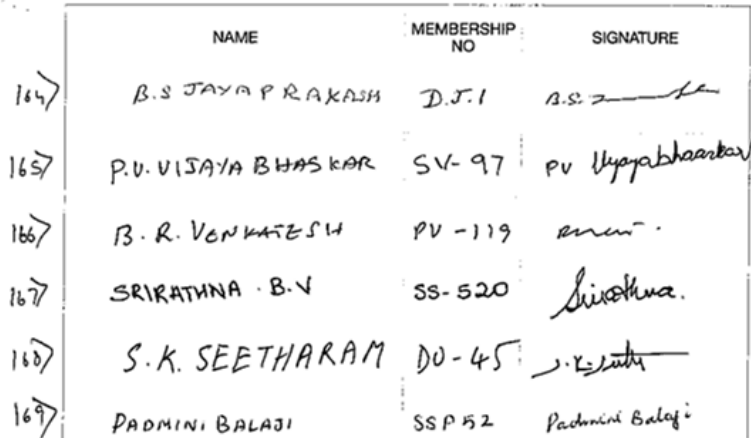 NAME MEMBERSHIP NO SIGNATURE
164) B.S JAYAPRAKASH D.J.1 B.S.
165) P.V. VIJAYA BHASKAR SV-97 PV Vijayabhaskar
166) B.R. VENKATESH PV-119
167) SRIRATHNA.B.V SS-520 Srirathna.
168) S.K. SEETHARAM DU-45 S.K.
169) PADMINI BALAJI SSP52 Padmini Balaji